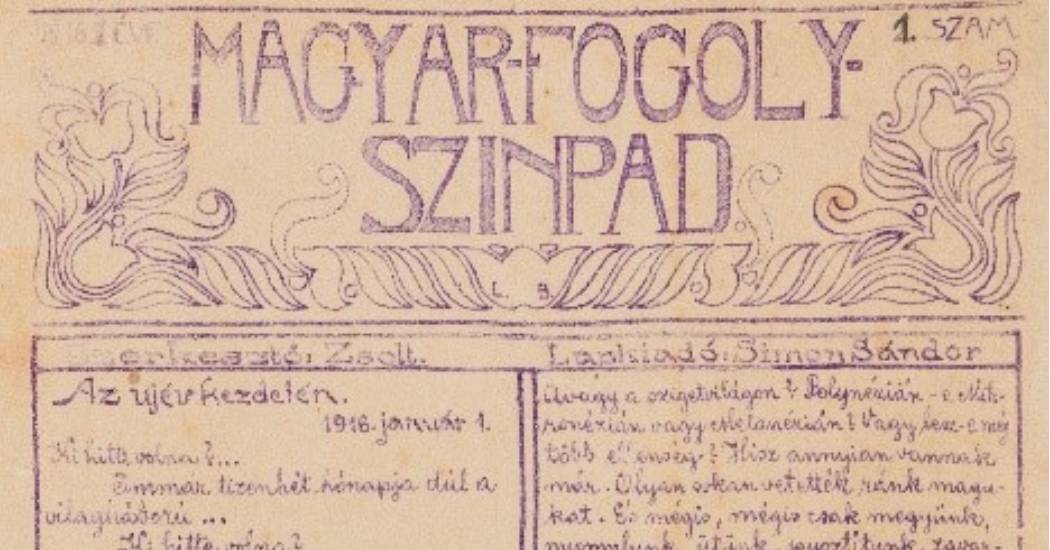 1916 ÉVF.
1. SZÁM
MAGYAR-FOGOLY-
SZINPAD
L. B.
Szerkesztő: Zsolt.
Lapkiadó: Simon Sándor
Az ujév kezdetén.
1916. január 1.
Ki hitte volna?...
Immár tizenhét hónapja dúl a
világháború ...
Ki hitte volna?
Avagy a szigetvilágon? Polynézián-e Mik-
ronézián vagy Melanézián? Vagy lesz-e még
több ellenség? Hisz annyian vannak
már. Olyan sokan vetették ránk magu-
kat. És mégis, mégis csak megyünk,
nyomulunk, ütünk, pusztítunk